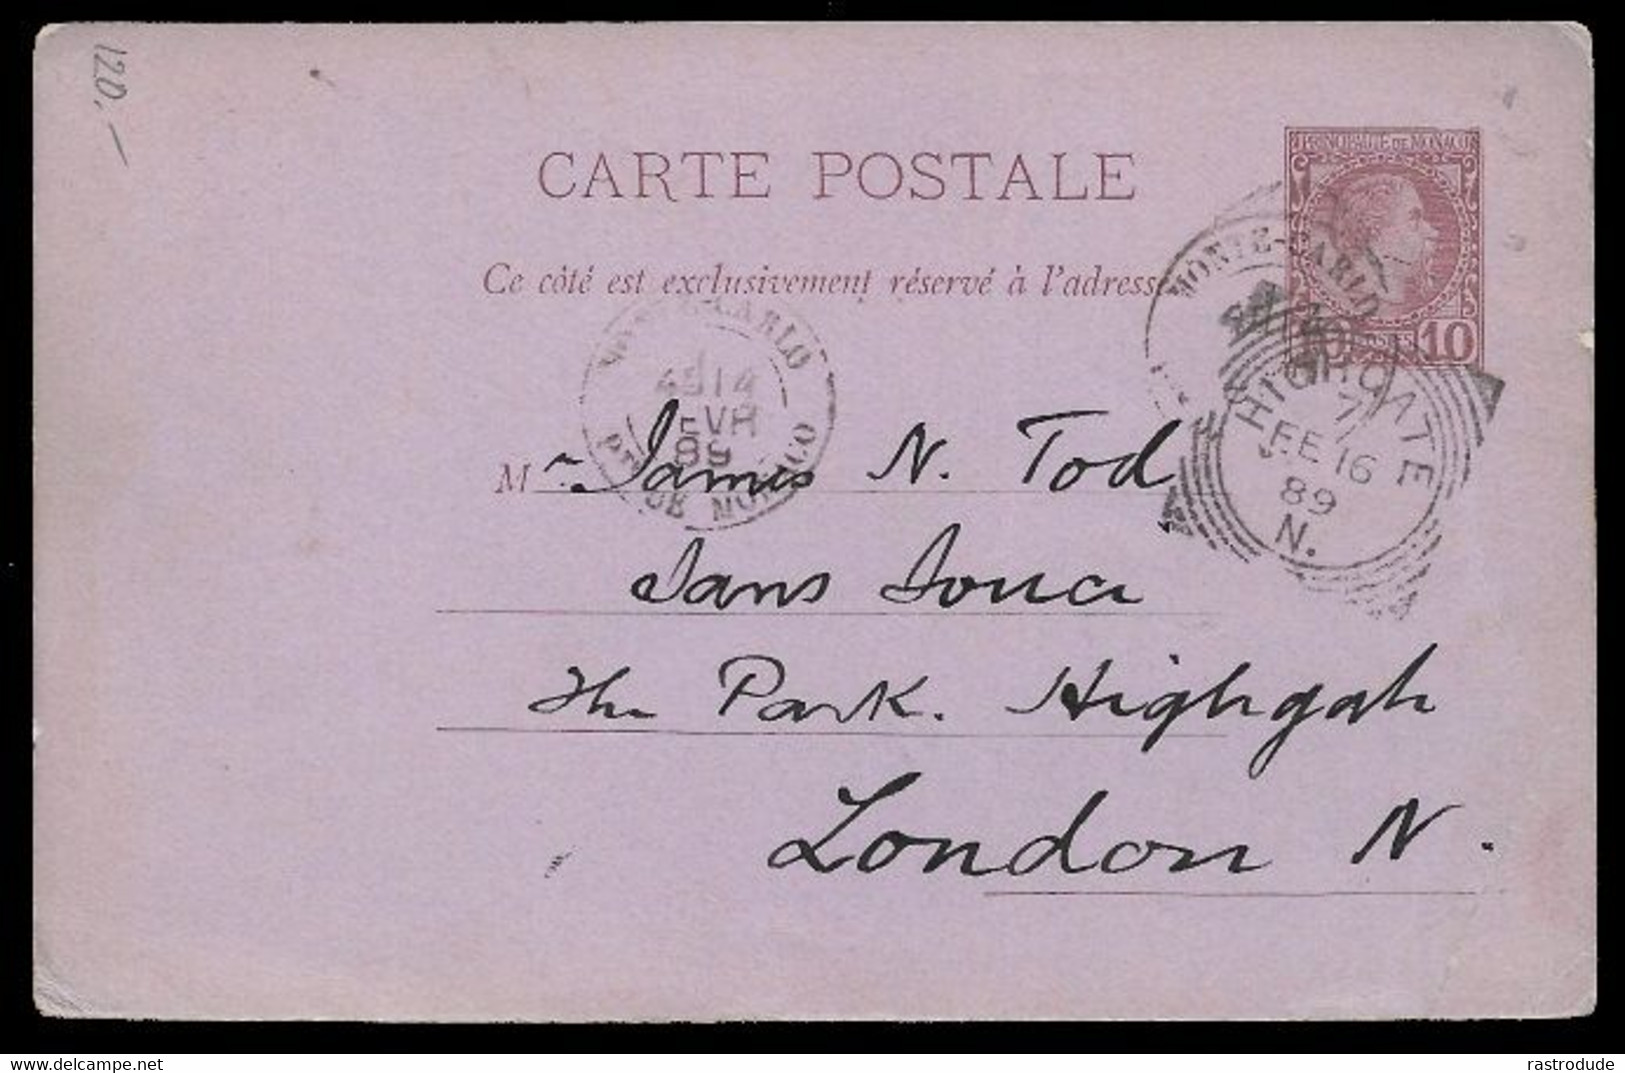 120.-
CARTE POSTALE
PRINCIPAUTE DE MONACO
Ce côté est exclusivement réservé à l'adresse
10
MONTE-CARLO
MONTE-CARLO
14
EVR
89
DE MONACO
HIGHGATE
7
FE 16
89
N.
Mr James N. Tod
Sans Souci
The Park. Highgate
London N.
delcampe.net
rastrodude